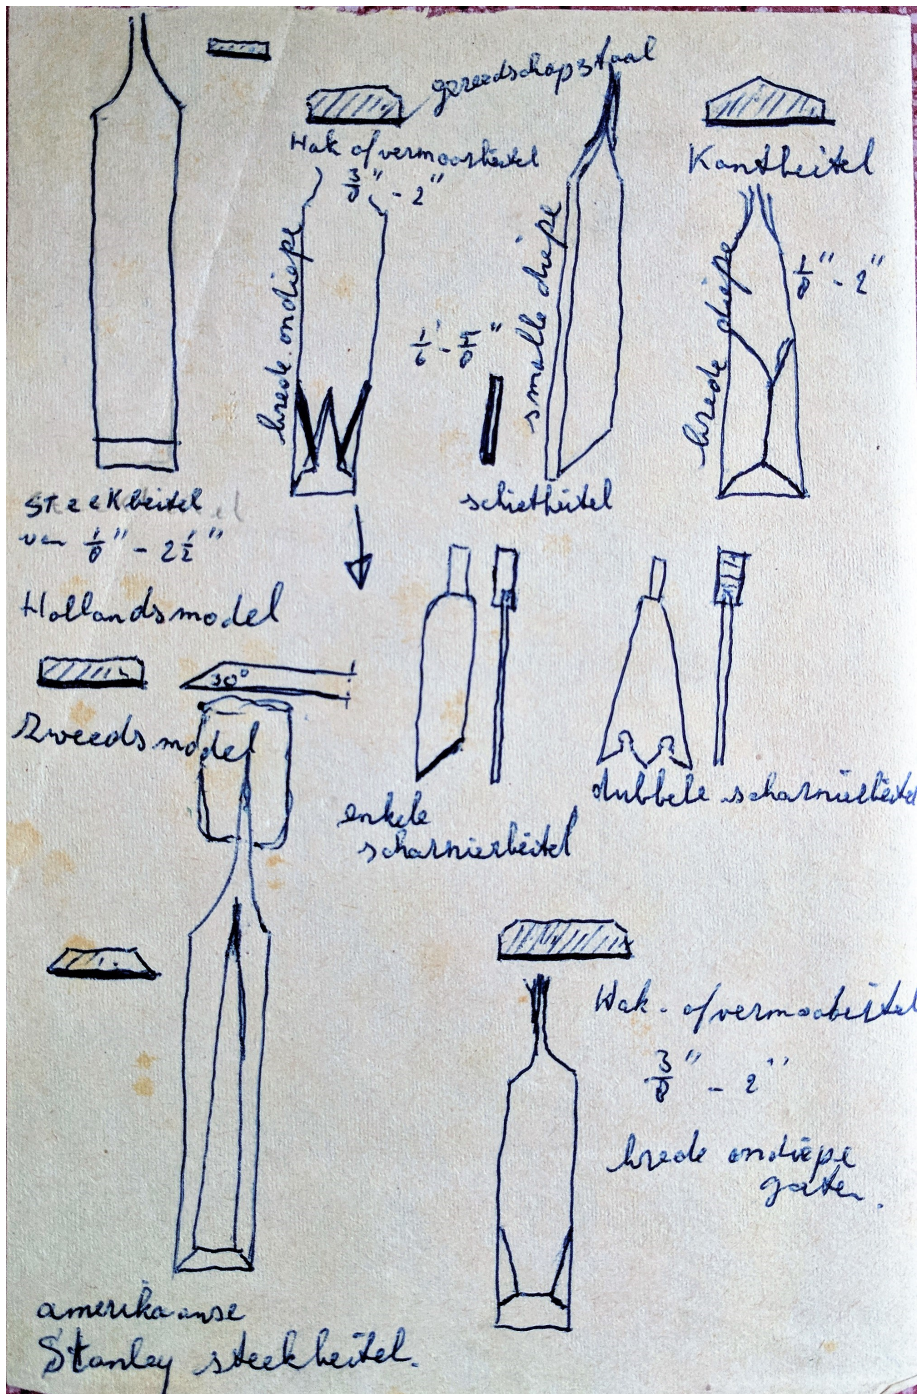 gereedschapstaal
Hak of vermoorbeitel
3/8" - 2"
brede ondiepe
smalle diepe
Kantbeitel
1/8" - 2"
brede diepe
steekbeitel
van 1/8" - 2 1/2"
Hollandsmodel
schietbeitel
30°
Zweedsmodel
enkele
scharnierbeitel
dubbele scharnierbeitel
Hak- of vermoobeitel
3/8" - 2"
brede ondiepe
gaten.
amerikaanse
Stanley steekbeitel.